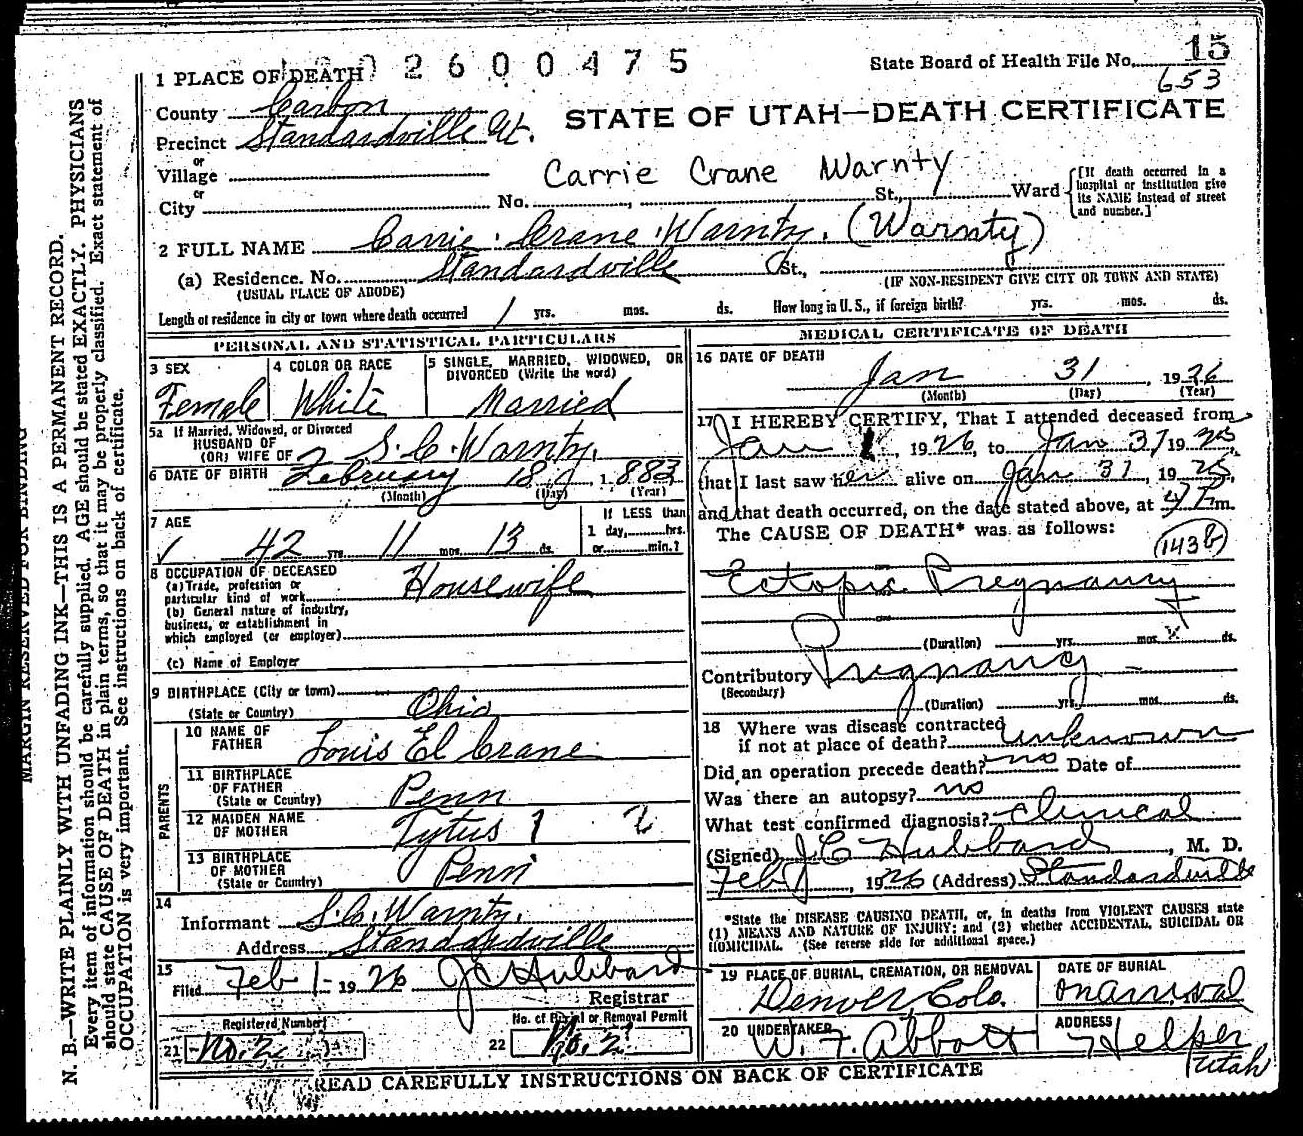 2600475
State Board of Health File No. 15
653
1 PLACE OF DEATH
County Carbon
STATE OF UTAH—DEATH CERTIFICATE
Precinct Standardville Ut.
or
Village
Carrie Crane Warnty
or
City No. , St., Ward
[If death occurred in a hospital or institution give its NAME instead of street and number.]
2 FULL NAME Carrie Crane Warnty. (Warnty)
(a) Residence. No. Standardville St.,
(USUAL PLACE OF ABODE)
(IF NON-RESIDENT GIVE CITY OR TOWN AND STATE)
Length of residence in city or town where death occurred 1 yrs. mos. ds. How long in U. S., if foreign birth? yrs. mos. ds.
PERSONAL AND STATISTICAL PARTICULARS
3 SEX
Female
4 COLOR OR RACE
White
5 SINGLE, MARRIED, WIDOWED, OR DIVORCED (Write the word)
Married
5a If Married, Widowed, or Divorced
HUSBAND OF
(OR) WIFE OF S. C. Warnty.
6 DATE OF BIRTH February 18, 1883
(Month) (Day) (Year)
7 AGE
42 yrs. 11 mos. 13 ds.
If LESS than
1 day, hrs.
or min.?
8 OCCUPATION OF DECEASED
(a) Trade, profession or
particular kind of work Housewife
(b) General nature of industry,
business, or establishment in
which employed (or employer)
(c) Name of Employer
9 BIRTHPLACE (City or town)
(State or Country) Ohio
PARENTS
10 NAME OF
FATHER Louis El Crane
11 BIRTHPLACE
OF FATHER
(State or Country) Penn
12 MAIDEN NAME
OF MOTHER Tytus ?
13 BIRTHPLACE
OF MOTHER
(State or Country) Penn
14
Informant S. C. Warnty.
Address Standardville
15
Filed Feb 1- 1926 J C Hubbard
Registrar
Registered Number
21 No. 2
No. of Burial or Removal Permit
22 No. 2
MEDICAL CERTIFICATE OF DEATH
16 DATE OF DEATH
Jan 31, 1926
(Month) (Day) (Year)
17 I HEREBY CERTIFY, That I attended deceased from
Jan 1, 1926, to Jan 31 1926,
that I last saw her alive on Jan 31, 1926,
and that death occurred, on the date stated above, at 4 P m.
The CAUSE OF DEATH* was as follows:
143b
Ectopic Pregnancy
(Duration) yrs. mos. ds.
Contributory Pregnancy
(Secondary)
(Duration) yrs. mos. ds.
18 Where was disease contracted
if not at place of death? unknown
Did an operation precede death? no Date of
Was there an autopsy? no
What test confirmed diagnosis? Clinical
(Signed) J C Hubbard, M. D.
Feb, 1926 (Address) Standardville
*State the DISEASE CAUSING DEATH, or, in deaths from VIOLENT CAUSES state
(1) MEANS AND NATURE OF INJURY; and (2) whether ACCIDENTAL, SUICIDAL OR
HOMICIDAL. (See reverse side for additional space.)
19 PLACE OF BURIAL, CREMATION, OR REMOVAL
Denver, Colo.
DATE OF BURIAL
on arrival
20 UNDERTAKER
W. F. Abbott
ADDRESS
Helper
Utah
READ CAREFULLY INSTRUCTIONS ON BACK OF CERTIFICATE
MARGIN RESERVED FOR BINDING
N. B.—WRITE PLAINLY WITH UNFADING INK—THIS IS A PERMANENT RECORD.
Every item of information should be carefully supplied. AGE should be stated EXACTLY. PHYSICIANS
should state CAUSE OF DEATH in plain terms, so that it may be properly classified. Exact statement of
OCCUPATION is very important. See instructions on back of certificate.